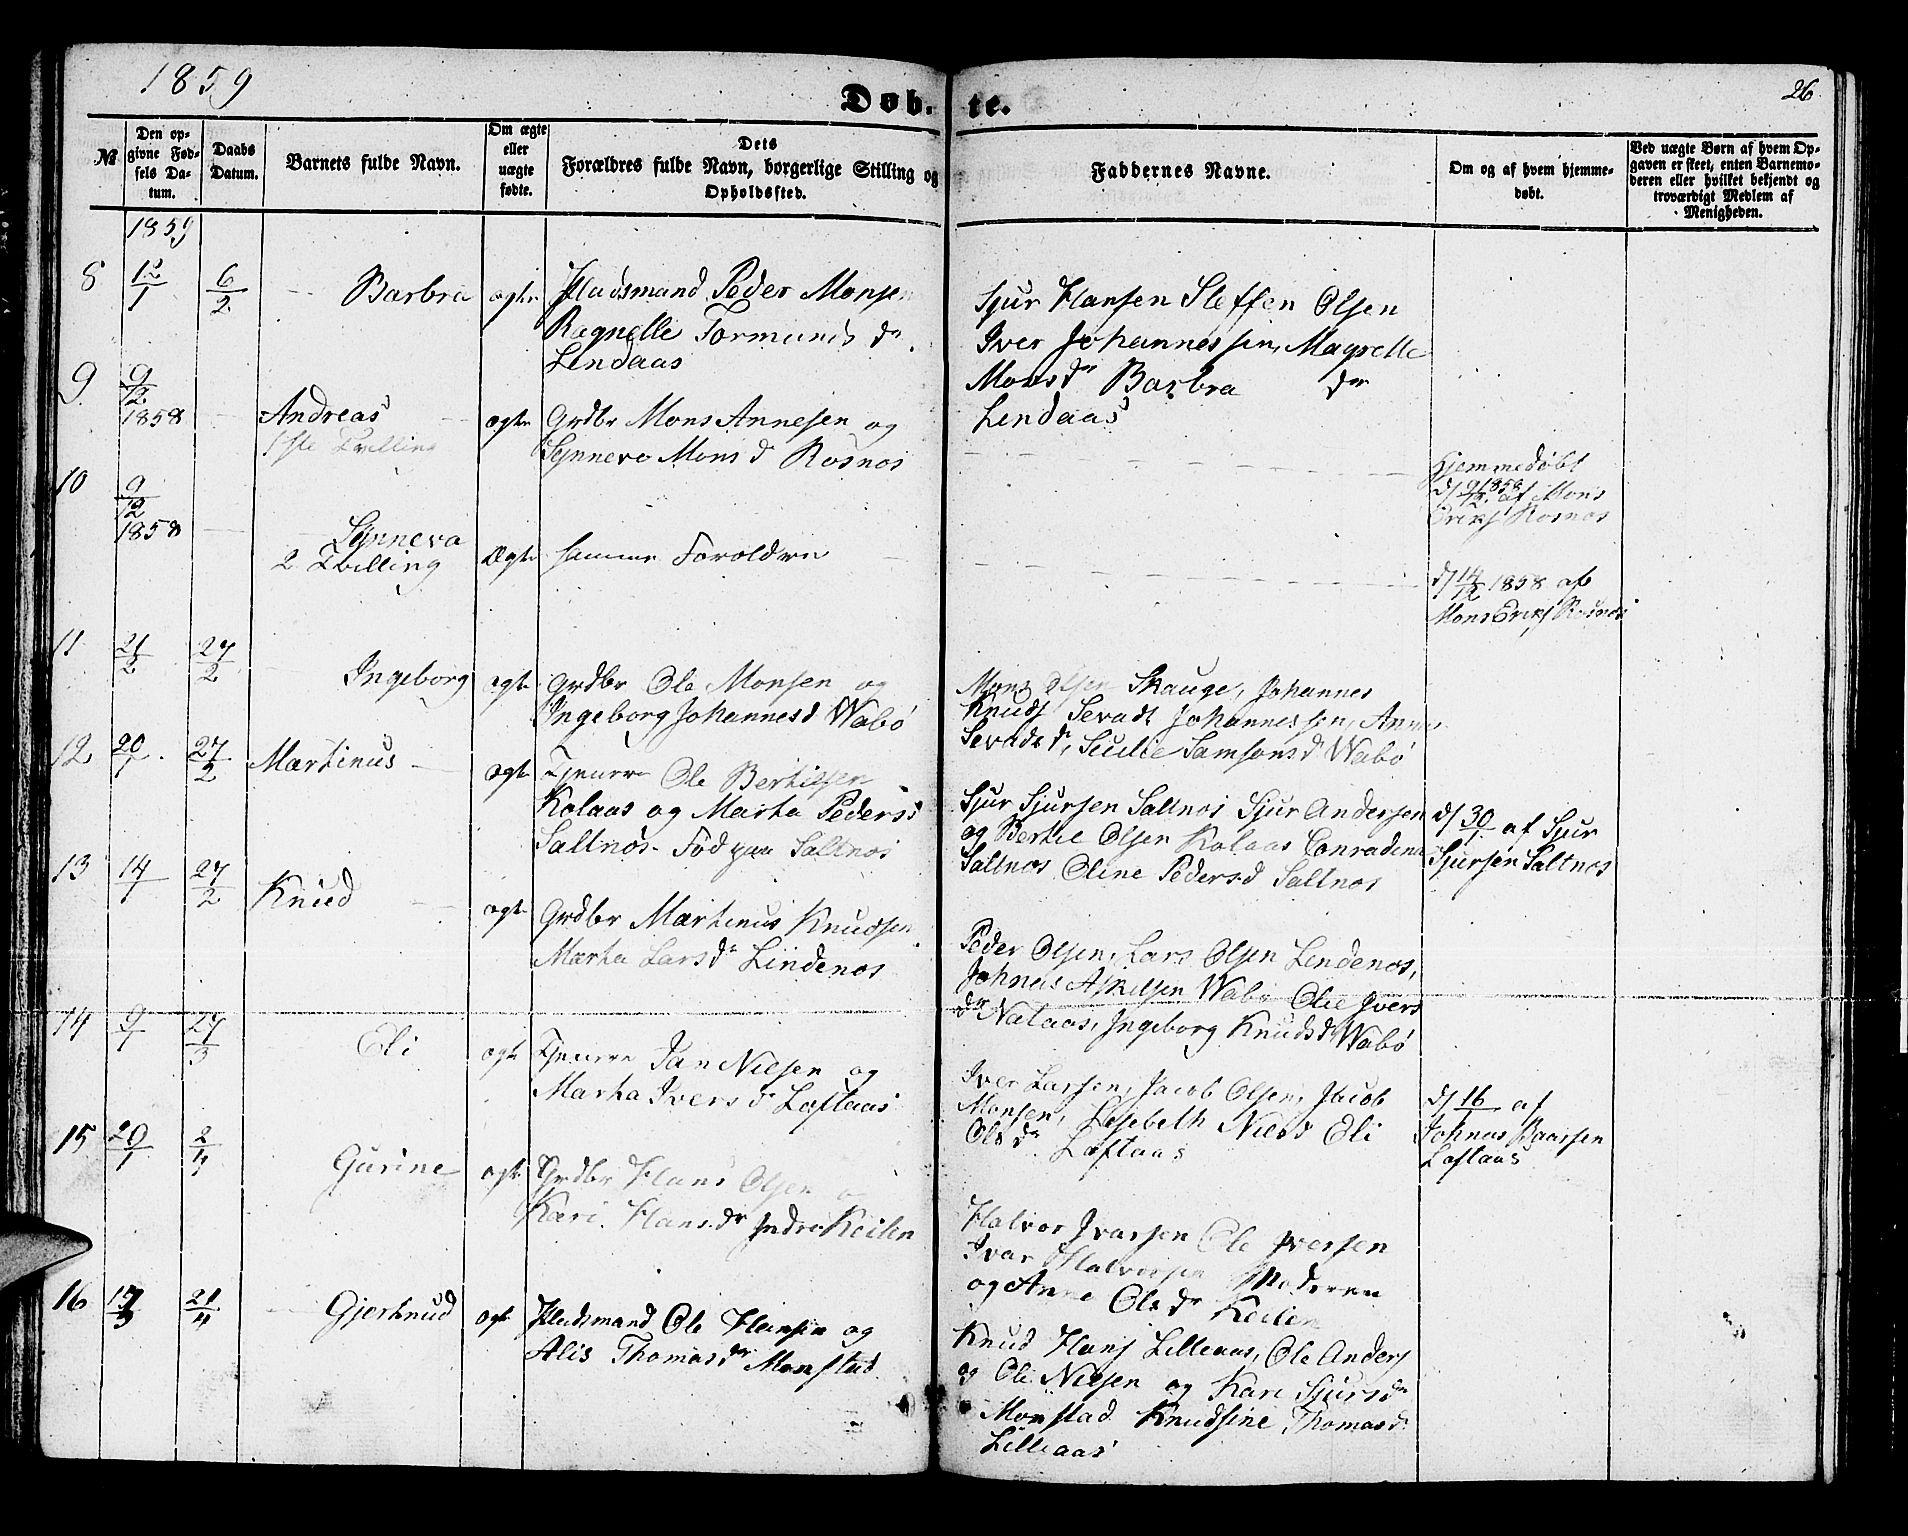 1859
26
Døb- te.
№
Den op-
givne Fød-
sels Da-
tum.
Daabs
Datum.
Barnets fulde Navn.
Om ægte
eller
uægte
fødte.
Dets
Forældres fulde Navn, borgerlige Stilling og
Opholdssted.
Faddernes Navne.
Om og af hvem hjemme-
døbt.
Ved uægte Børn af hvem Op-
gaven er skeet, enten Barnemo-
deren eller hvilket bekjendt og
troværdigt Medlem af
Menigheden.
1859
8 12/1 6/2 Barbra ægte Huusmand Peder Monsen
Ragnelle Tormunds dr
Lendaas
Sjur Hansen Steffen Olsen
Iver Johannessen, Magrelle
Monsdr Barbra dr
Lendaas
9 9/12
1858 Andreas ægte Grdbr Mons Annesen og
1ste Tvilling Synneva Mons d Rosnos
Hjemmedøbt
d/ 9/12 1858 af Mons
Eriks Rosnos
10 9/12
1858 Synneva
2 Tvilling Ægte samme Foroldre
d/ 14/12 1858 af
Mons Eriks Rosnos
11 21/2 27/2 Ingeborg ægte Grdbr Ole Monsen og
Ingeborg Johannesd Wabø
Mons Olsen Skauge, Johannes
Knuds Sevadt Johannessen, Anna
Sevadsdr, Secilie Samsonsd Wabø
12 20/1 27/2 Martinus ægte Tjenere Ole Bertilsen
Kolaas og Martha Pedersd
Saltnos. Fød paa Saltnos
Sjur Sjursen Saltnos Sjur Andersen
og Bertil Olsen Kolaas Conradine
Saltnos Oline Pedersd Saltnos
d/ 30/1 af Sjur
Sjursen Saltnos
13 14/1 27/2 Knud ægte Grdbr Martinus Knudsen
Martha Larsdr Lindenos
Peder Olsen, Lars Olsen Lendenos,
Johnes Wabø Olie Ivers
dr Nataas, Ingeborg Knudsd Wabø
14 9/1 27/3 Eli ægte Tjenere Jan Nilsen og
Martha Iversd Loftaas
Iver Larsen, Jacob Olsen, Jacob
Monsen, Lesebeth Nilsd Eli
Olsdr Loftaas
d/ 16/1 af
Johnas Baarsen
Loftaas
15 29/1 2/4 Gurine ægte Grdbr Hans Olsen og
Kari Hansdr Indre Keilen
Halvor Ivarsen Ole Iversen
Ivar Halvorsen Moderen
og Anne Olsdr Keilen
16 17/3 21/4 Gjertrud ægte Huusmand Ole Hansen og
Alis Thomasdr Monstad
Knud Hans Lilleaas, Ole Anders
og Ole Nilsen og Kari Sjursdr
Monstad Knudsine Thomasd
Lilleaas